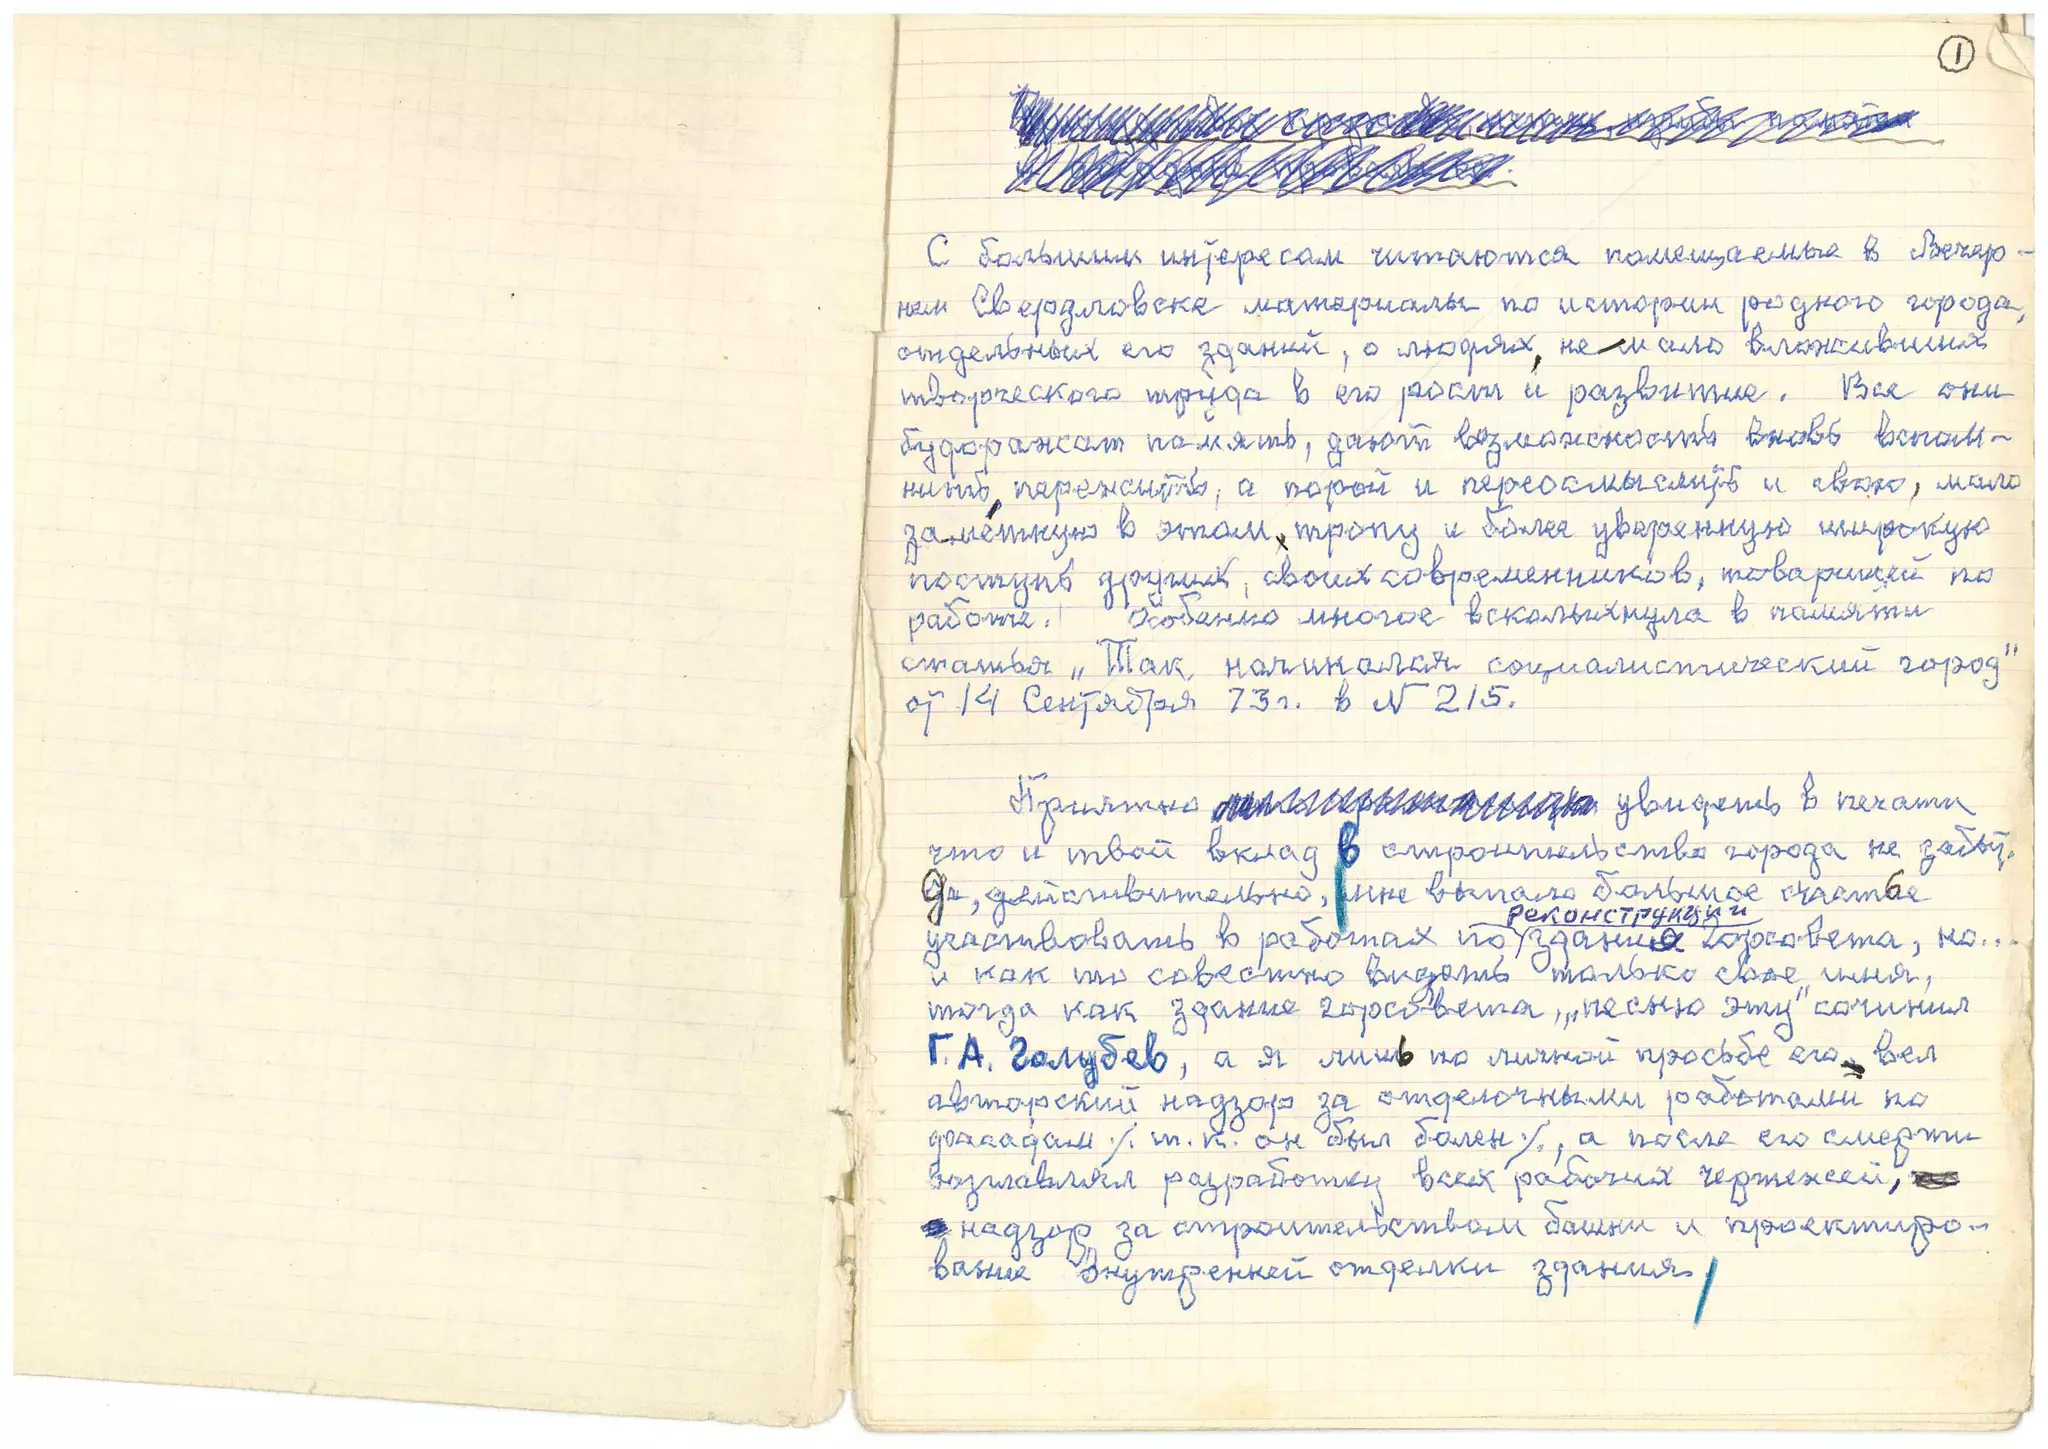 1
С большим интересом читаются помещаемые в Вечер-
нем Свердловске материалы по истории родного города,
отдельных его зданий, о людях, не мало вложивших
творческого труда в его рост и развитие. Все они
будоражат память, дают возможность вновь вспом-
нить, пережить, а порой и переосмыслить и свою, мало
заметную в этом, тропу и более уверенную широкую
поступь других, своих современников, товарищей по
работе. Особенно многое всколыхнула в памяти
статья „Так начинался социалистический город"
от 14 Сентября 73г. в N 215.
Приятно увидеть в печати
что и твой вклад в строительство города не забыт.
Да, действительно, мне выпало большое счастье
реконструкции
участвовать в работах по здания горсовета, но...
и как то совестно видеть только свое имя,
тогда как здание горсовета, „песню эту" сочинил
Г. А. Голубев, а я лишь по личной просьбе его, вел
авторский надзор за отделочными работами по
фасадам /. т. к. он был болен /., а после его смерти
возглавлял разработку всех рабочих чертежей,
надзор за строительством башни и проектиро-
вание внутренней отделки здания.